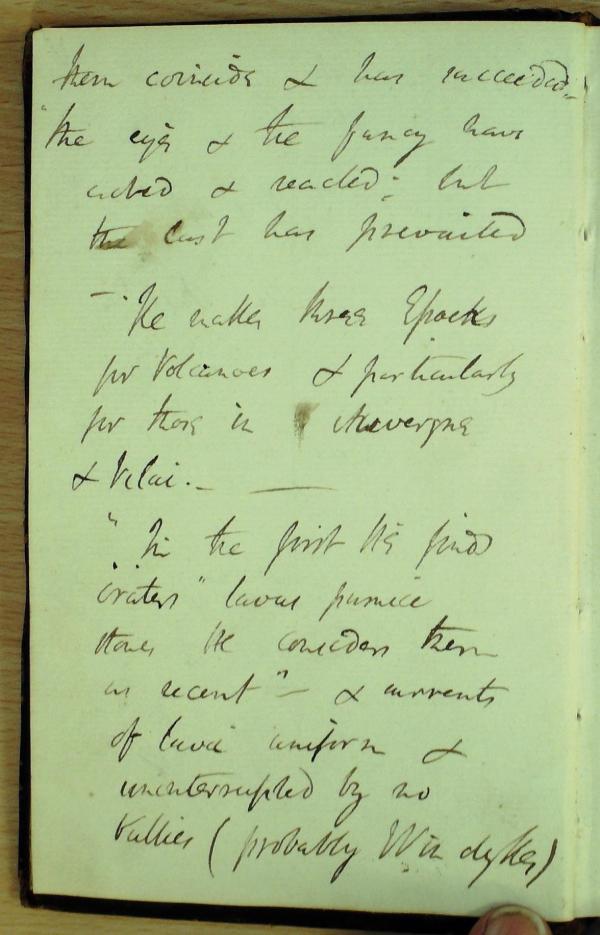 them coincide & has succeeded –
"the eye & the fancy have
acted & reacted; but
the last has prevailed
– "He makes three Epochs
for Volcanoes & particularly
for those in Auvergne
& Velai. – —
" In the first He finds
"craters" lavas pumice
stones He considers them
as recent" – & currents
of lava uniform &
uninterrupted by no
Vallies (probably Win dykes)